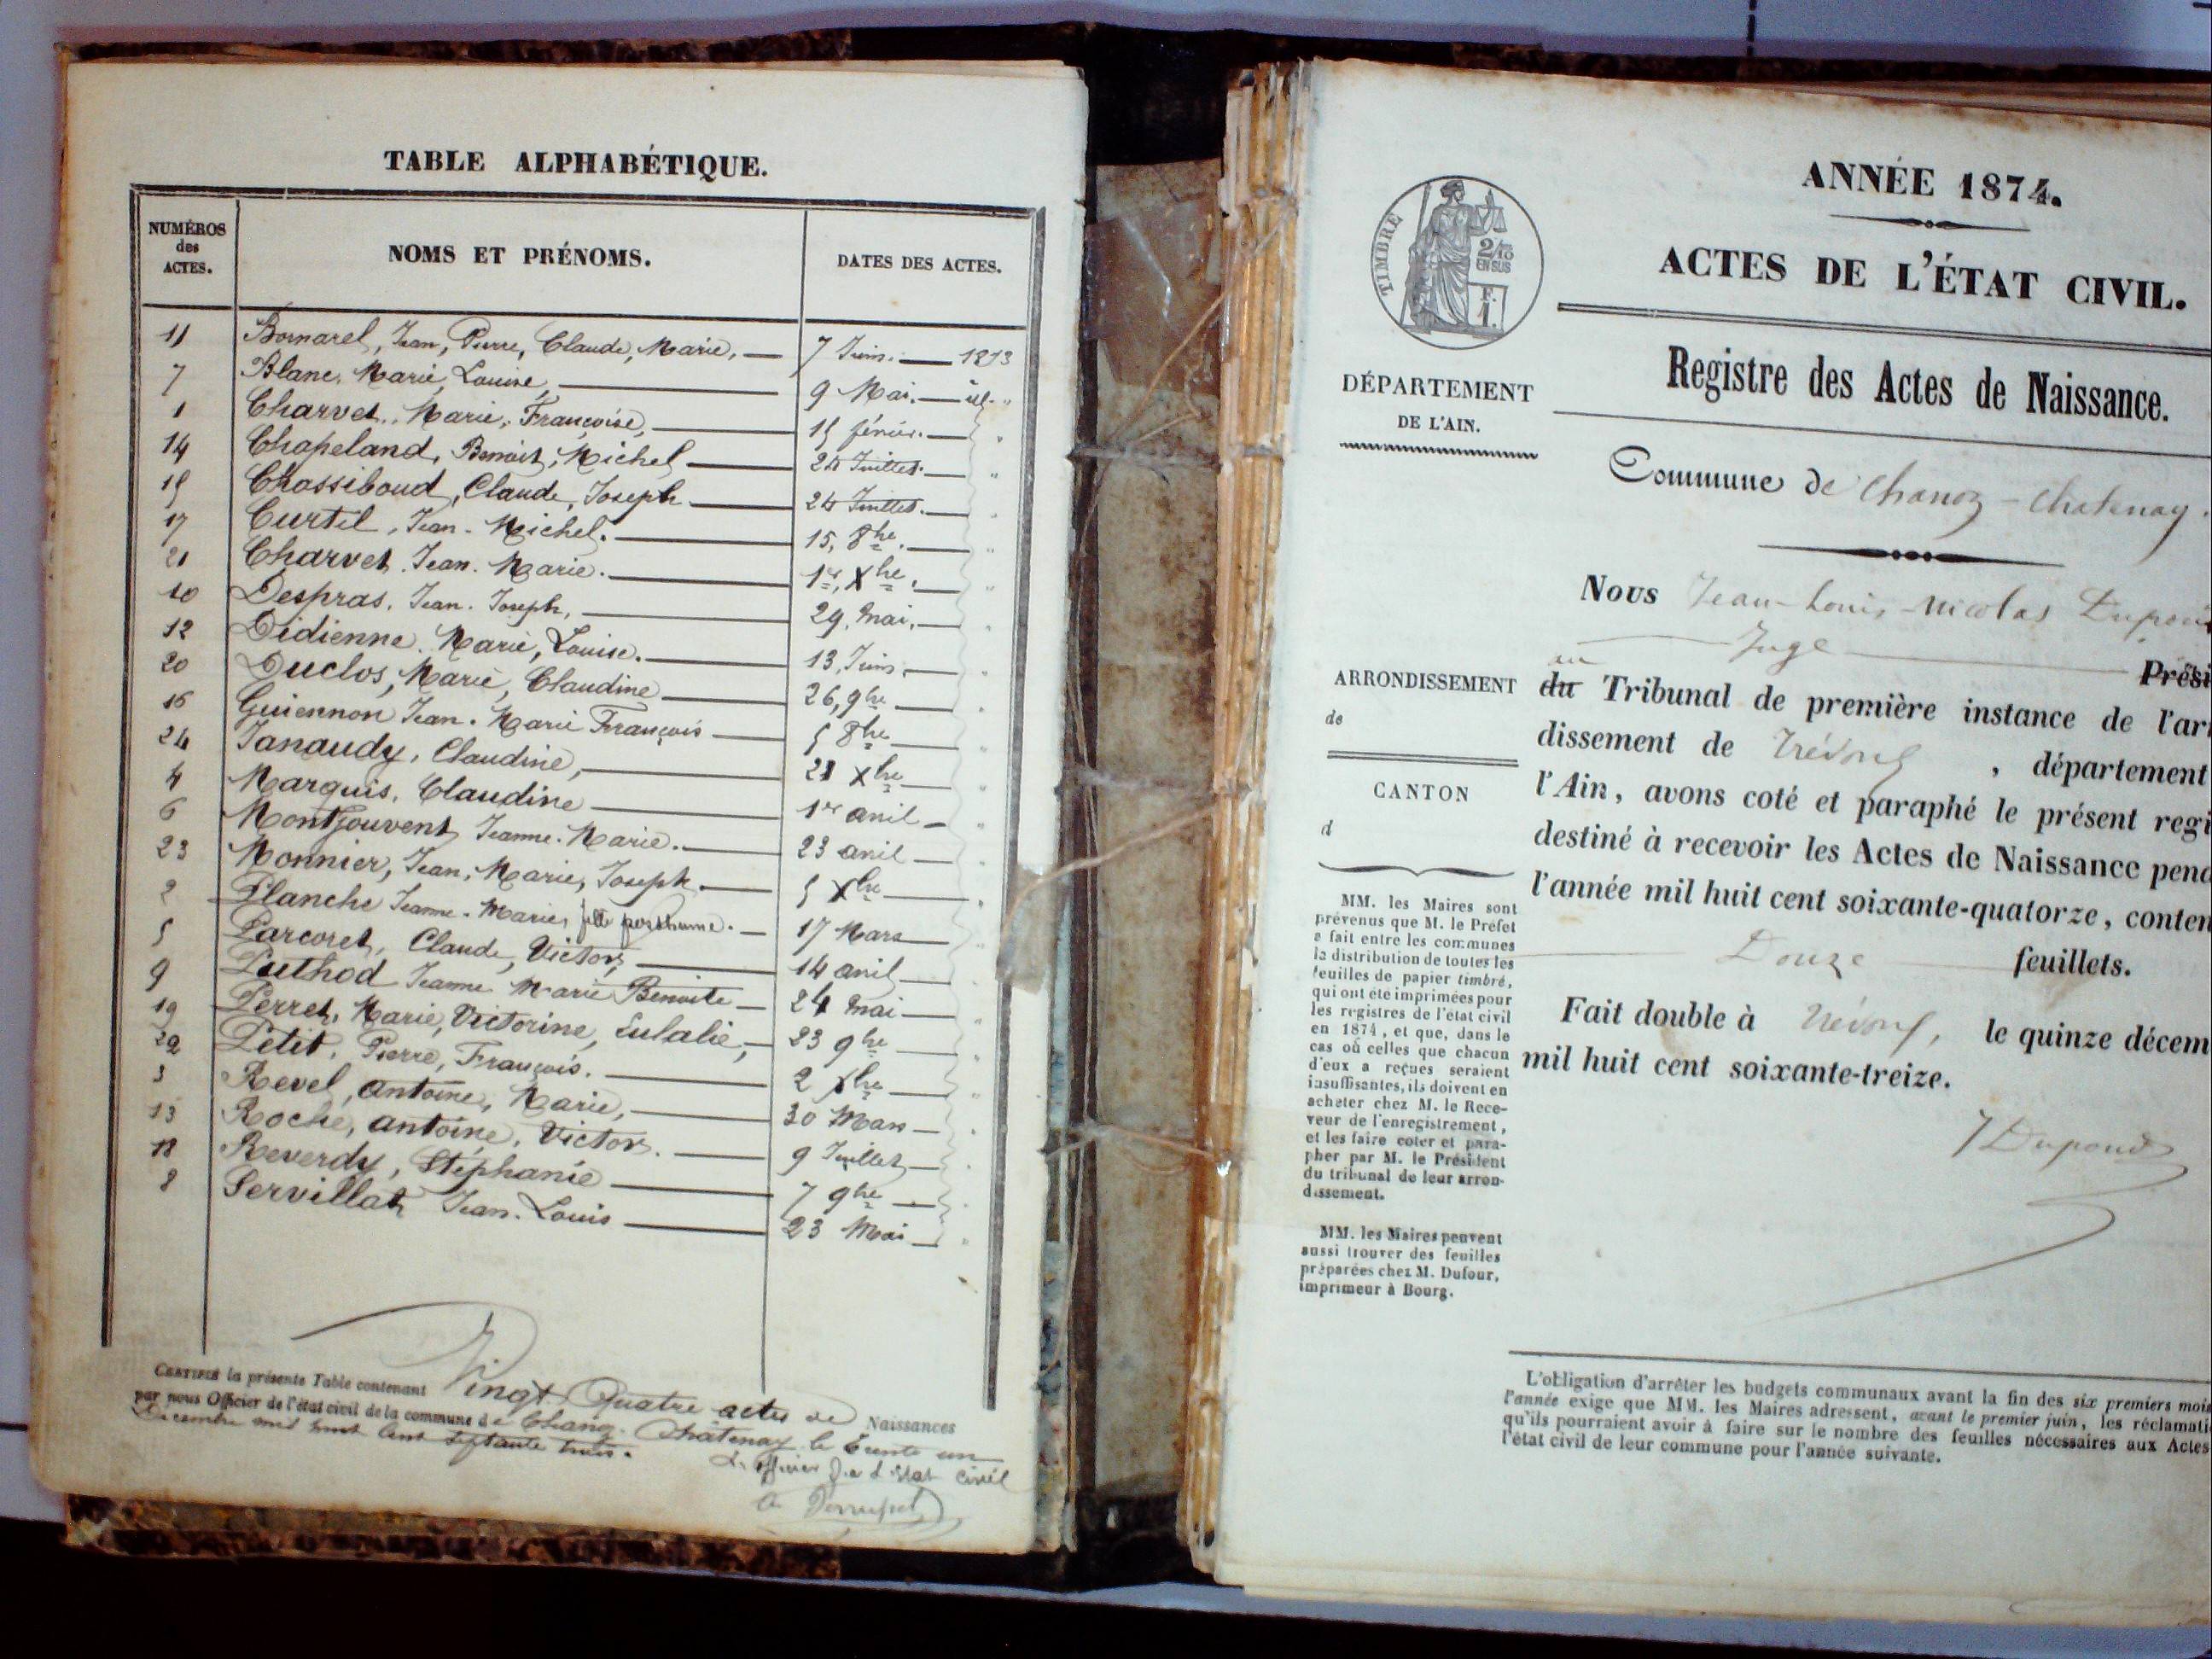 TABLE ALPHABÉTIQUE.
NUMÉROS des ACTES.
NOMS ET PRÉNOMS.
DATES DES ACTES.
11 Bornarel, Jean, Pierre, Claude, Marie, — 7 Juin. — 1873
7 Blanc, Marie, Louise, — 9 Mai. — id. "
1 Charvet, Marie, Françoise, — 15 févrir. — "
14 Chapeland, Benoit, Michel — 24 Juillet. — "
15 Chassiboud, Claude, Joseph — 24 Juillet. — "
17 Curtil, Jean-Michel. — 15, 8bre. — "
21 Charvet. Jean. Marie. — 1er, Xbre. — "
10 Despras, Jean. Joseph, — 29, mai, — "
12 Didienne. Marie, Louise. — 13, Juin, — "
20 Duclos, Marie, Claudine — 26, 9bre — "
16 Guiennon Jean. Marie François — 5 8bre — "
24 Janaudy, Claudine, — 21 Xbre — "
4 Marquis, Claudine — 1er avril — "
6 Montjouvent Jeanne. Marie. — 23 avril — "
23 Monnier, Jean, Marie, Joseph. — 5 Xbre — "
2 Planche Jeanne. Marie, fille posthume. — 17 Mars — "
5 Parcoret, Claude, Victor, — 14 avril — "
9 Puthod Jeanne Marie Benoite — 24 mai — "
19 Perret, Marie, Victorine, Eulalie, — 23 9bre — "
22 Petit, Pierre, François. — 2 Xbre — "
3 Revel, Antoine, Marie, — 30 Mars — "
13 Roche, Antoine, Victor. — 9 Juillet — "
18 Reverdy, Stéphanie — 7 9bre — "
8 Servillat Jean. Louis — 23 Mai — "
CERTIFIÉ la présente Table contenant Vingt Quatre actes de Naissances
par nous Officier de l'état civil de la commune de Chanoz-Châtenay le trente un
Décembre mil huit cent septante trois.
L'officier de l'état civil
TIMBRE
2/10
EN SUS
F.
1.
ANNÉE 1874.
ACTES DE L'ÉTAT CIVIL.
DÉPARTEMENT
DE L'AIN.
Registre des Actes de Naissance.
Commune de Chanoz-Chatenay.
Nous Jean-Louis-Nicolas Dupon
Juge Prési
ARRONDISSEMENT
de
CANTON
d
au
du Tribunal de première instance de l'ar
dissement de Trévoux, département
l'Ain, avons coté et paraphé le présent regi
destiné à recevoir les Actes de Naissance pend
l'année mil huit cent soixante-quatorze, conten
Douze feuillets.
Fait double à Trévoux, le quinze décem
mil huit cent soixante-treize.
J Dupond
MM. les Maires sont
prévenus que M. le Préfet
a fait entre les communes
la distribution de toutes les
feuilles de papier timbré,
qui ont été imprimées pour
les registres de l'état civil
en 1874, et que, dans le
cas où celles que chacun
d'eux a reçues seraient
insuffisantes, ils doivent en
acheter chez M. le Rece-
veur de l'enregistrement,
et les faire coter et para-
pher par M. le Président
du tribunal de leur arron-
dissement.
MM. les Maires peuvent
aussi trouver des feuilles
préparées chez M. Dufour,
imprimeur à Bourg.
L'obligation d'arrêter les budgets communaux avant la fin des six premiers mois
l'année exige que MM. les Maires adressent, avant le premier juin, les réclamati
qu'ils pourraient avoir à faire sur le nombre des feuilles nécessaires aux Actes
l'état civil de leur commune pour l'année suivante.